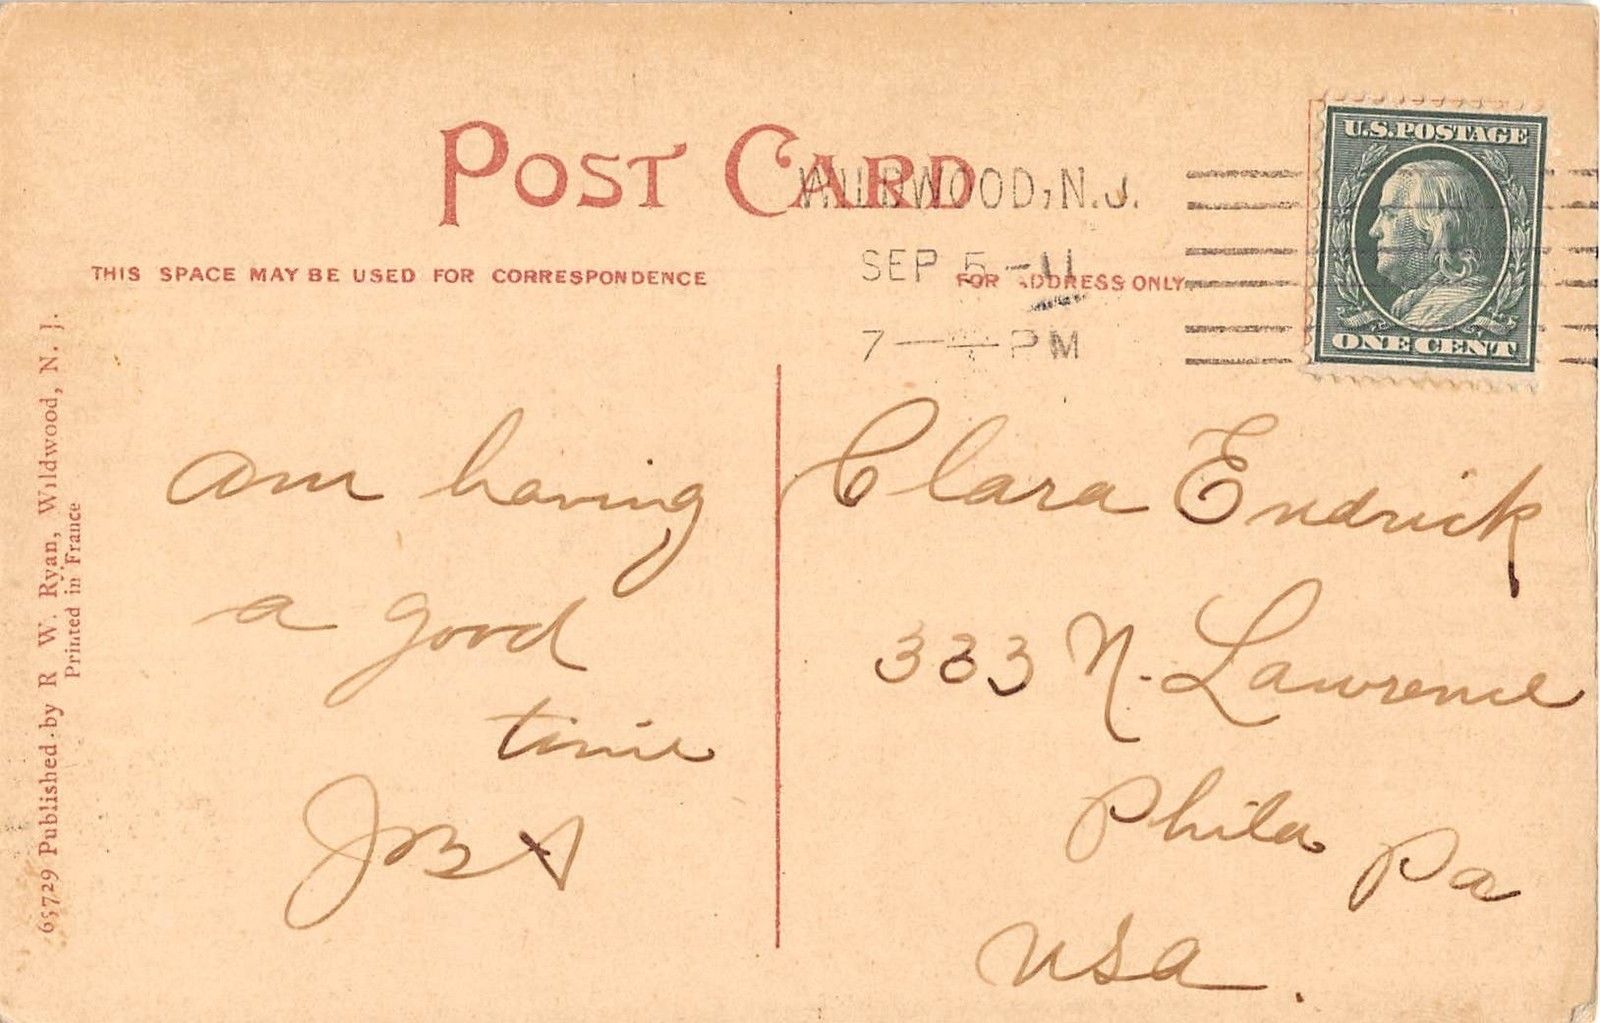 POST CARD
WILDWOOD, N.J.
SEP 5 - 11
7 - PM
U.S. POSTAGE
ONE CENT
THIS SPACE MAY BE USED FOR CORRESPONDENCE
FOR ADDRESS ONLY
65729 Published by R W. Ryan, Wildwood, N. J.
Printed in France
am having
a good
time
JBA
Clara Endrick
333 N. Lawrence
Phila Pa
USA.